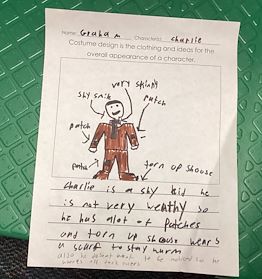 Name: Graham Character: charlie
Costume design is the clothing and ideas for the
overall appearance of a character.
very skinny
shy smile
patch
patch
patch
torn up shouse
Charlie is a shy kid he
is not very wealthy so
he has alot of patches
and torn up shouse wears
a scarf to stay warm
also he doesnt want to be noticed so he
wears all dark